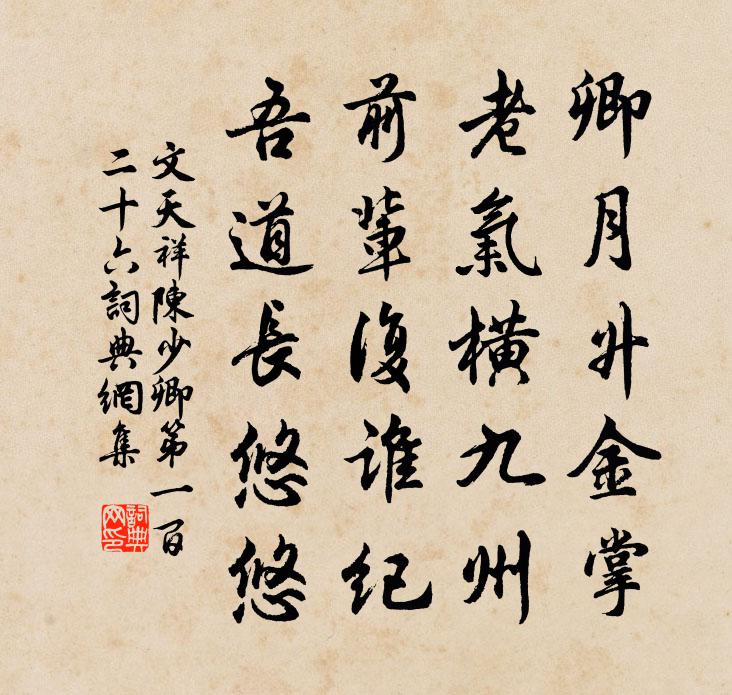 卿月升金掌
老氣橫九州
前輩復誰紀
吾道長悠悠
文天祥陳少卿第一百
二十六詞典網集
詞典网印